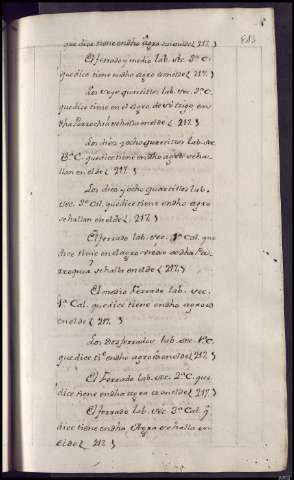 que dice tiene en dho agro es en el de { 217. }
El ferrado y medio lab. sec. 2ª C.
que dice tiene en dho agro es en el de { 217. }
Los seys quartillos lab. sec. 3ª C.
que dice tiene en el agro de en
dha Parrochia se halla en el de { 217. }
Los diez y ocho quartillos lab. sec
3ª C. que dice tiene en dho agro se ha
llan en el de { 217. }
Los diez y ocho quartillos lab.
sec. 3ª Cal. que dice tiene en dho agro
se hallan en el de { 217. }
El ferrado lab. sec. 1ª Cal. que
dice tiene en el agro de dha Pa
rroquia se halla en el de { 217. }
El medio Ferrado lab. sec.
1ª Cal. que dice tiene en dho agro es
en el de { 217. }
Los Dos ferrados lab. sec. 1ª C.
que dice tiº en dho agro es en el de { 217. }
El Ferrado lab. sec. 2ª C. que
dice tiene en dho agro es en el de { 217. }
El ferrado lab. sec. 2ª Cal. q
dice tiene en dho Agro se halla en
el de { 217. }